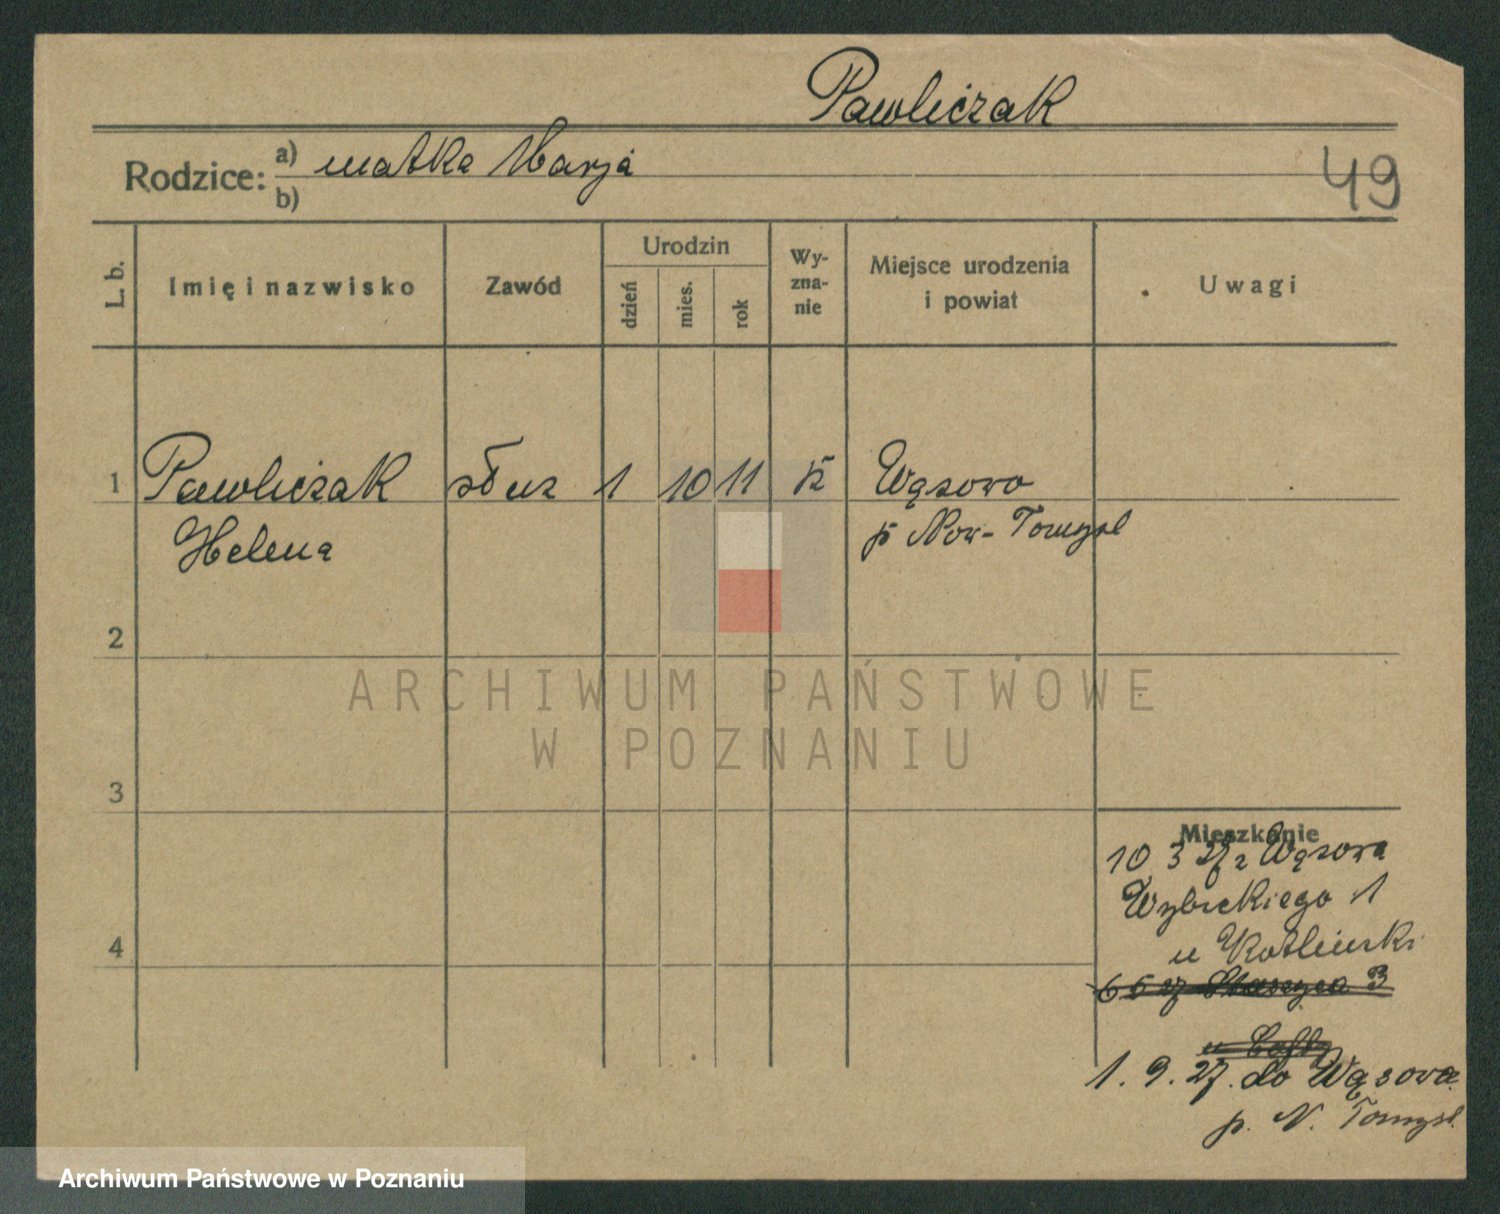 Pawliczak
Rodzice: a) matka Marja
b)
49
L. b. Imię i nazwisko Zawód Urodzin dzień mies. rok Wy-zna-nie Miejsce urodzenia i powiat Uwagi
1 Pawliczak służ 1 10 11 k Wąsowo
Helena p Now-Tomyśl
2
3
4
Mieszkanie
10 3 27 z Wąsowa
Wybickiego 1
u Kotlinski
6 5 27 Staszyca 3
u
1. 9. 27. do Wąsowa
p. N. Tomyśl.
ARCHIWUM PAŃSTWOWE
W POZNANIU
Archiwum Państwowe w Poznaniu